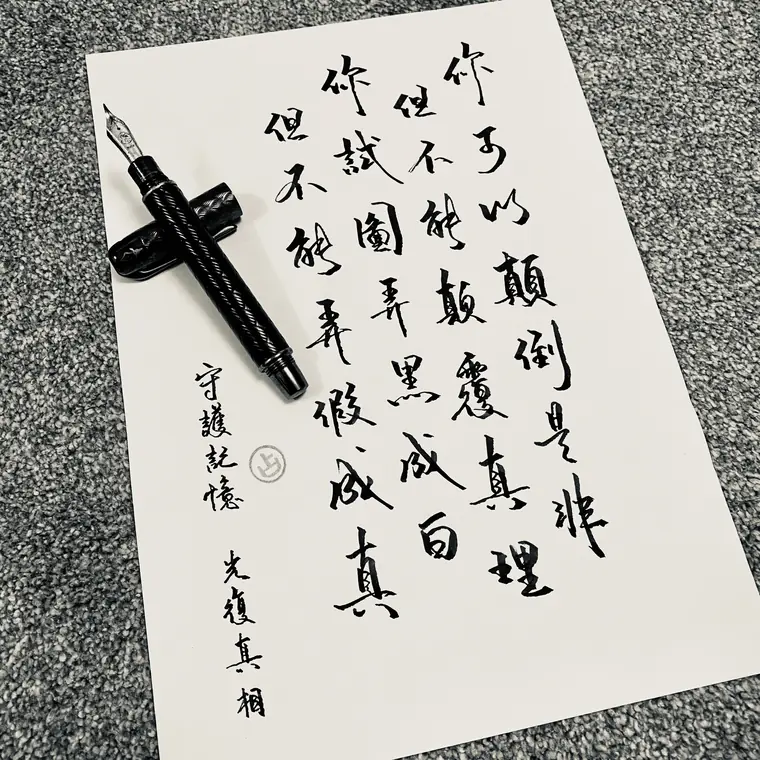 你可以顛倒是非
但不能顛覆真理
你試圖弄黑成白
但不能弄假成真
守護記憶 光復真相